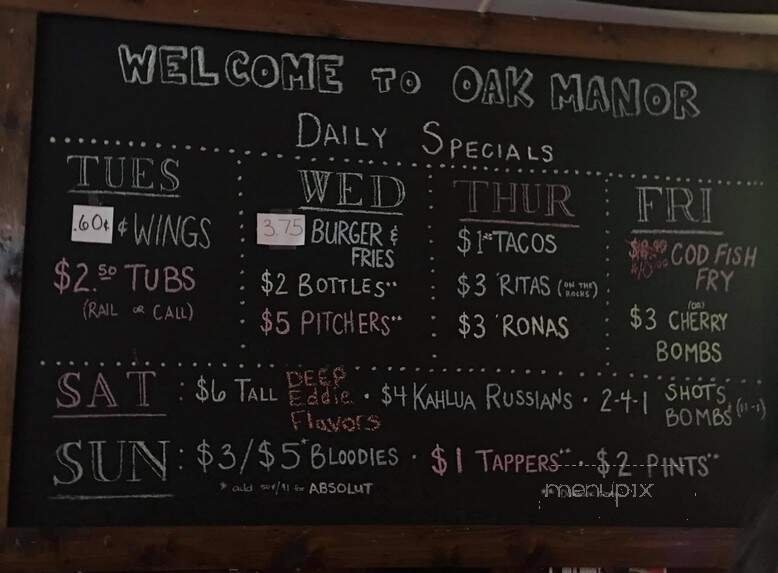 WELCOME TO OAK MANOR
DAILY SPECIALS
TUES
.60¢ ¢ WINGS
$2.50 TUBS
(RAIL OR CALL)
WED
3.75 BURGER &
FRIES
$2 BOTTLES**
$5 PITCHERS**
THUR
$1 TACOS
$3 'RITAS (ON THE ROCKS)
$3 'RONAS
FRI
COD FISH
FRY
(OR)
$3 CHERRY
BOMBS
SAT : $6 TALL DEEP Eddie Flavors · $4 KAHLUA RUSSIANS · 2-4-1 SHOTS BOMBS (11-1)
SUN : $3/$5* BLOODIES · $1 TAPPERS** · $2 PINTS**
* add 50¢/$1 for ABSOLUT
menupix